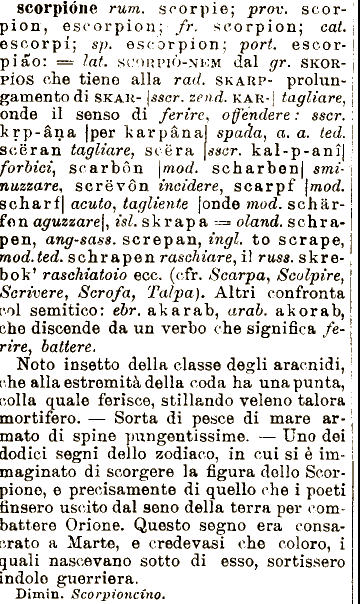 scorpióne rum. scorpie; prov. scor-
pion, escorpion; fr. scorpion; cat.
escorpí; sp. escorpion; port. escor-
pião: = lat. SCORPIÓ-NEM dal gr. SKOR-
PÍOS che tiene alla rad. SKARP- prolun-
gamento di SKAR- |sscr. zend. KAR-| tagliare,
onde il senso di ferire, offendere: sscr.
kṛp-âṇa |per karpâna| spada, a. a. ted.
scëran tagliare, scëra |sscr. kal-p-anî|
forbici, scarbôn |mod. scharben| smi-
nuzzare, scrëvôn incidere, scarpf |mod.
scharf| acuto, tagliente |onde mod. schär-
fen aguzzare|, isl. skrapa = oland. schra-
pen, ang-sass. screpan, ingl. to scrape,
mod. ted. schrapen raschiare, il russ. skre-
bok' raschiatoio ecc. (cfr. Scarpa, Scolpire,
Scrivere, Scrofa, Talpa). Altri confronta
col semitico: ebr. akarab, arab. akorab,
che discende da un verbo che significa fe-
rire, battere.
Noto insetto della classe degli aracnidi,
che alla estremità della coda ha una punta,
colla quale ferisce, stillando veleno talora
mortifero. — Sorta di pesce di mare ar-
mato di spine pungentissime. — Uno dei
dodici segni dello zodiaco, in cui si è im-
maginato di scorgere la figura dello Scor-
pione, e precisamente di quello che i poeti
finsero uscito dal seno della terra per com-
battere Orione. Questo segno era consa-
crato a Marte, e credevasi che coloro, i
quali nascevano sotto di esso, sortissero
indole guerriera.
Dimin. Scorpioncíno.